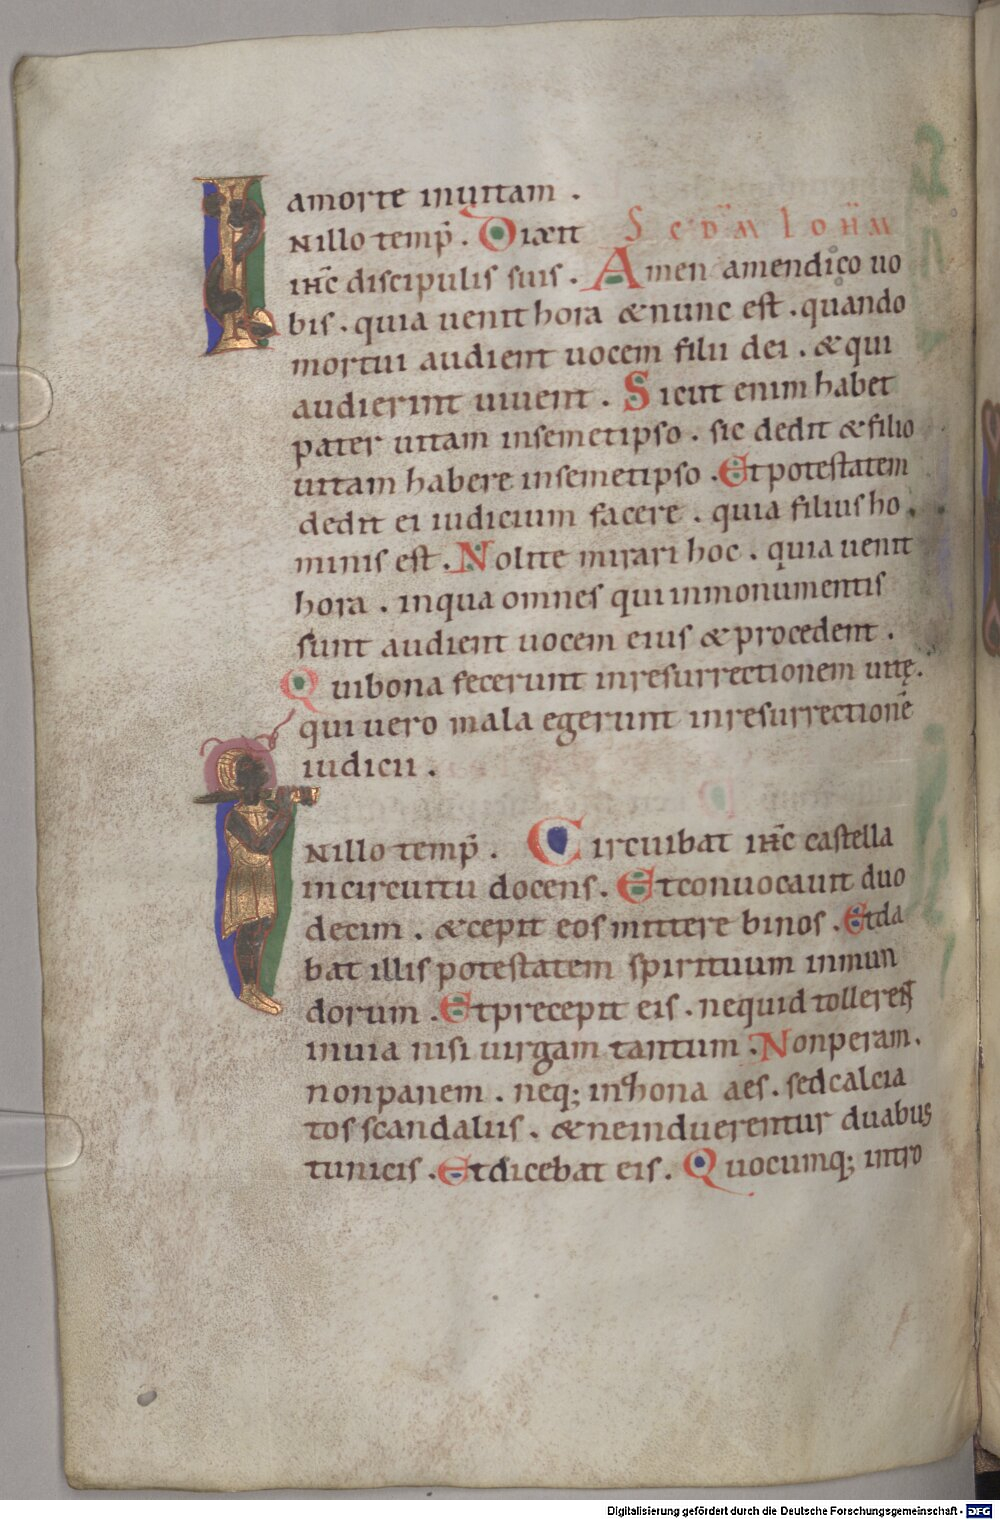 amorte inuitam .
INillo temp̄ . Dixit Scd̄m Ioh̄m
ih̄c discipulis suis . Amen amendico uo
bis . quia uenit hora & nunc est . quando
mortui audient uocem filii dei . & qui
audierint uiuent . Sicut enim habet
pater uitam insemetipso . sic dedit & filio
uitam habere insemetipso . Et potestatem
dedit ei iudicium facere . quia filius ho
minis est . Nolite mirari hoc . quia uenit
hora . inqua omnes qui inmonumentis
sunt audient uocem eius & procedent .
Qui bona fecerunt inresurrectionem uitę .
qui uero mala egerunt inresurrectionē
iudicii .
INillo temp̄ . Circuibat ih̄c castella
incircuitu docens . Et conuocauit duo
decim . & cepit eos mittere binos . Et da
bat illis potestatem spirituum inmun
dorum . Et precepit eis . nequid tollerent
inuia nisi uirgam tantum . Non peram .
non panem . neq; inzhona aes . sed calcia
tos scandaliis . & neinduerentur duabus
tunicis . Et dicebat eis . Quocumq; intro
Digitalisierung gefördert durch die Deutsche Forschungsgemeinschaft - DFG